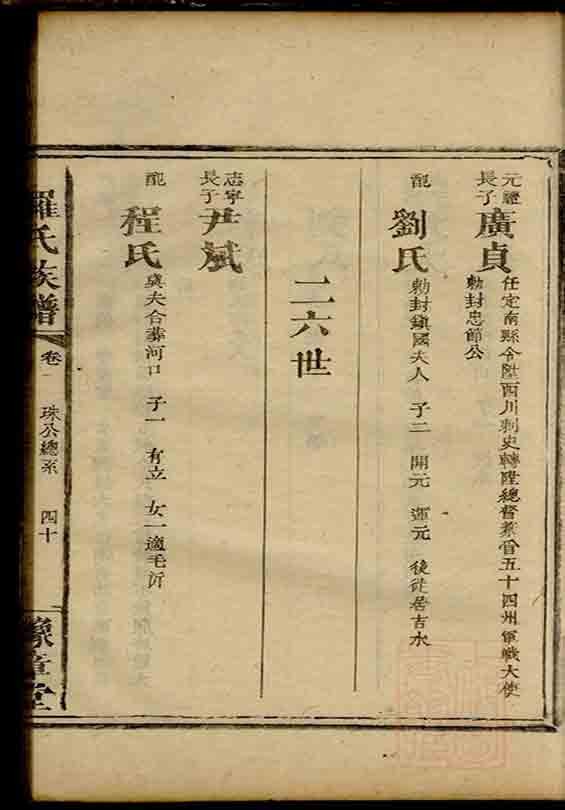 元讜
長子 廣貞 任定南縣令陞西川刺史轉陞總督兼管五十四州軍戰大使
勅封忠節公
配 劉氏 勅封鎮國夫人 子二 開元 運元 後徙居吉水
二六世
志寧
長子 尹斌
配 程氏 與夫合葬河口 子一 有立 女一適毛沂
羅氏族譜 卷一 珠公總系 四十 豫章堂